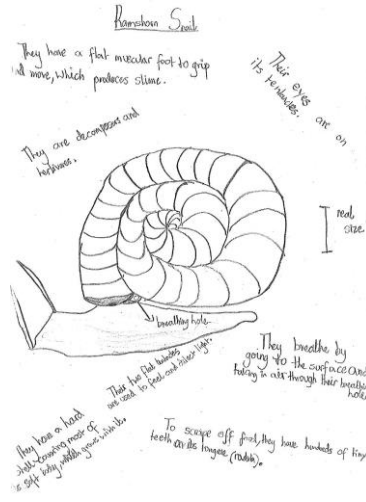 Ramshorn Snail
They have a flat muscular foot to grip
and move, which produces slime.
Their eyes are on
its tentacles.
They are decomposers and
herbivores.
real
size
breathing hole
They breathe by
going to the surface and
taking in air through their breathing
hole.
Their two flat tentacles
are used to feel and detect light.
They have a hard
shell covering most of
its soft body, which grows with it.
To scrape off food, they have hundreds of tiny
teeth on its tongue (radula).